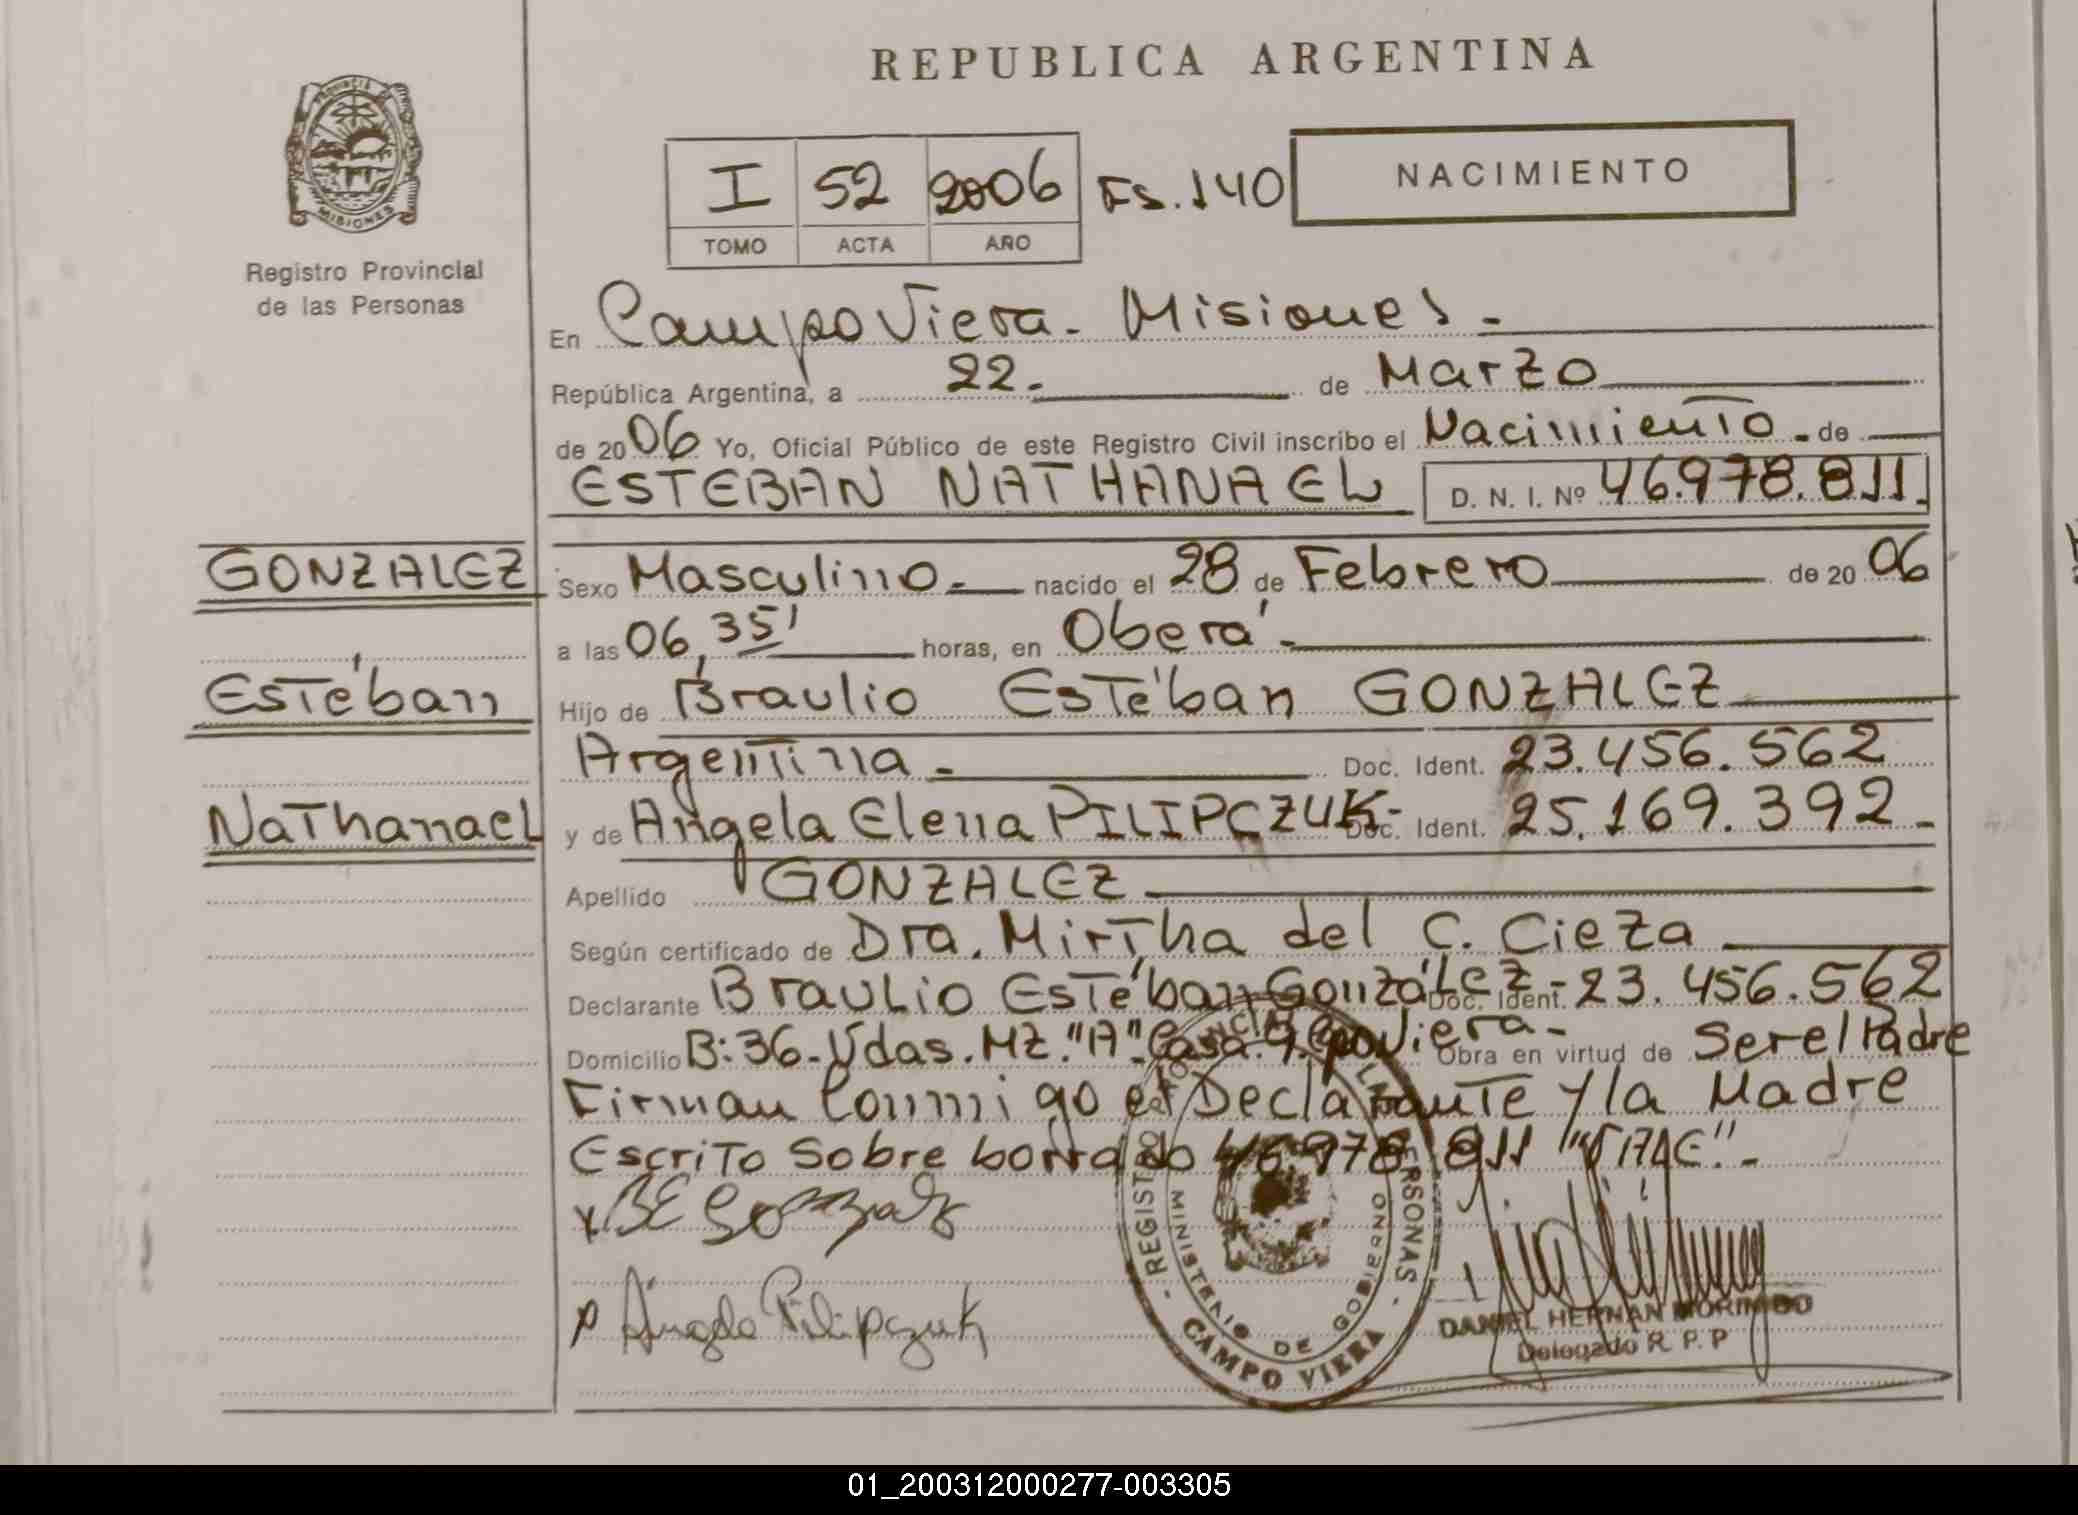 REPUBLICA ARGENTINA
PROVINCIA DE MISIONES
Registro Provincial
de las Personas
I 52 2006 Fs. 140
TOMO ACTA AÑO
NACIMIENTO
En Campo Viera - Misiones -
República Argentina, a 22 - de Marzo
de 2006 Yo, Oficial Público de este Registro Civil inscribo el Nacimiento - de
ESTEBAN NATHANAEL D. N. I. Nº 46.978.811.
GONZALEZ
Estéban
Nathanael
Sexo Masculino - nacido el 28 de Febrero de 2006
a las 06,35' horas, en Oberá -
Hijo de Braulio Estéban GONZALEZ
Argentina - Doc. Ident. 23.456.562
y de Angela Elena PILIPCZUK - Doc. Ident. 25.169.392 -
Apellido GONZALEZ
Según certificado de Dra. Mirtha del C. Cieza
Declarante Braulio Estéban González - Doc. Ident. 23.456.562
Domicilio B: 36 - Vdas. Mz. "A" Casa. 9. Cpo Viera - Obra en virtud de Ser el Padre
Firman Conmigo el Declarante y la Madre
Escrito Sobre borrado 46.978.811 "VALE" -
x BE Gonzalez
x Angela Pilipczuk
REGISTRO PROVINCIAL DE LAS PERSONAS
MINISTERIO DE GOBIERNO
CAMPO VIERA
DANIEL HERNAN MORINIGO
Delegado R. P. P
01_200312000277-003305